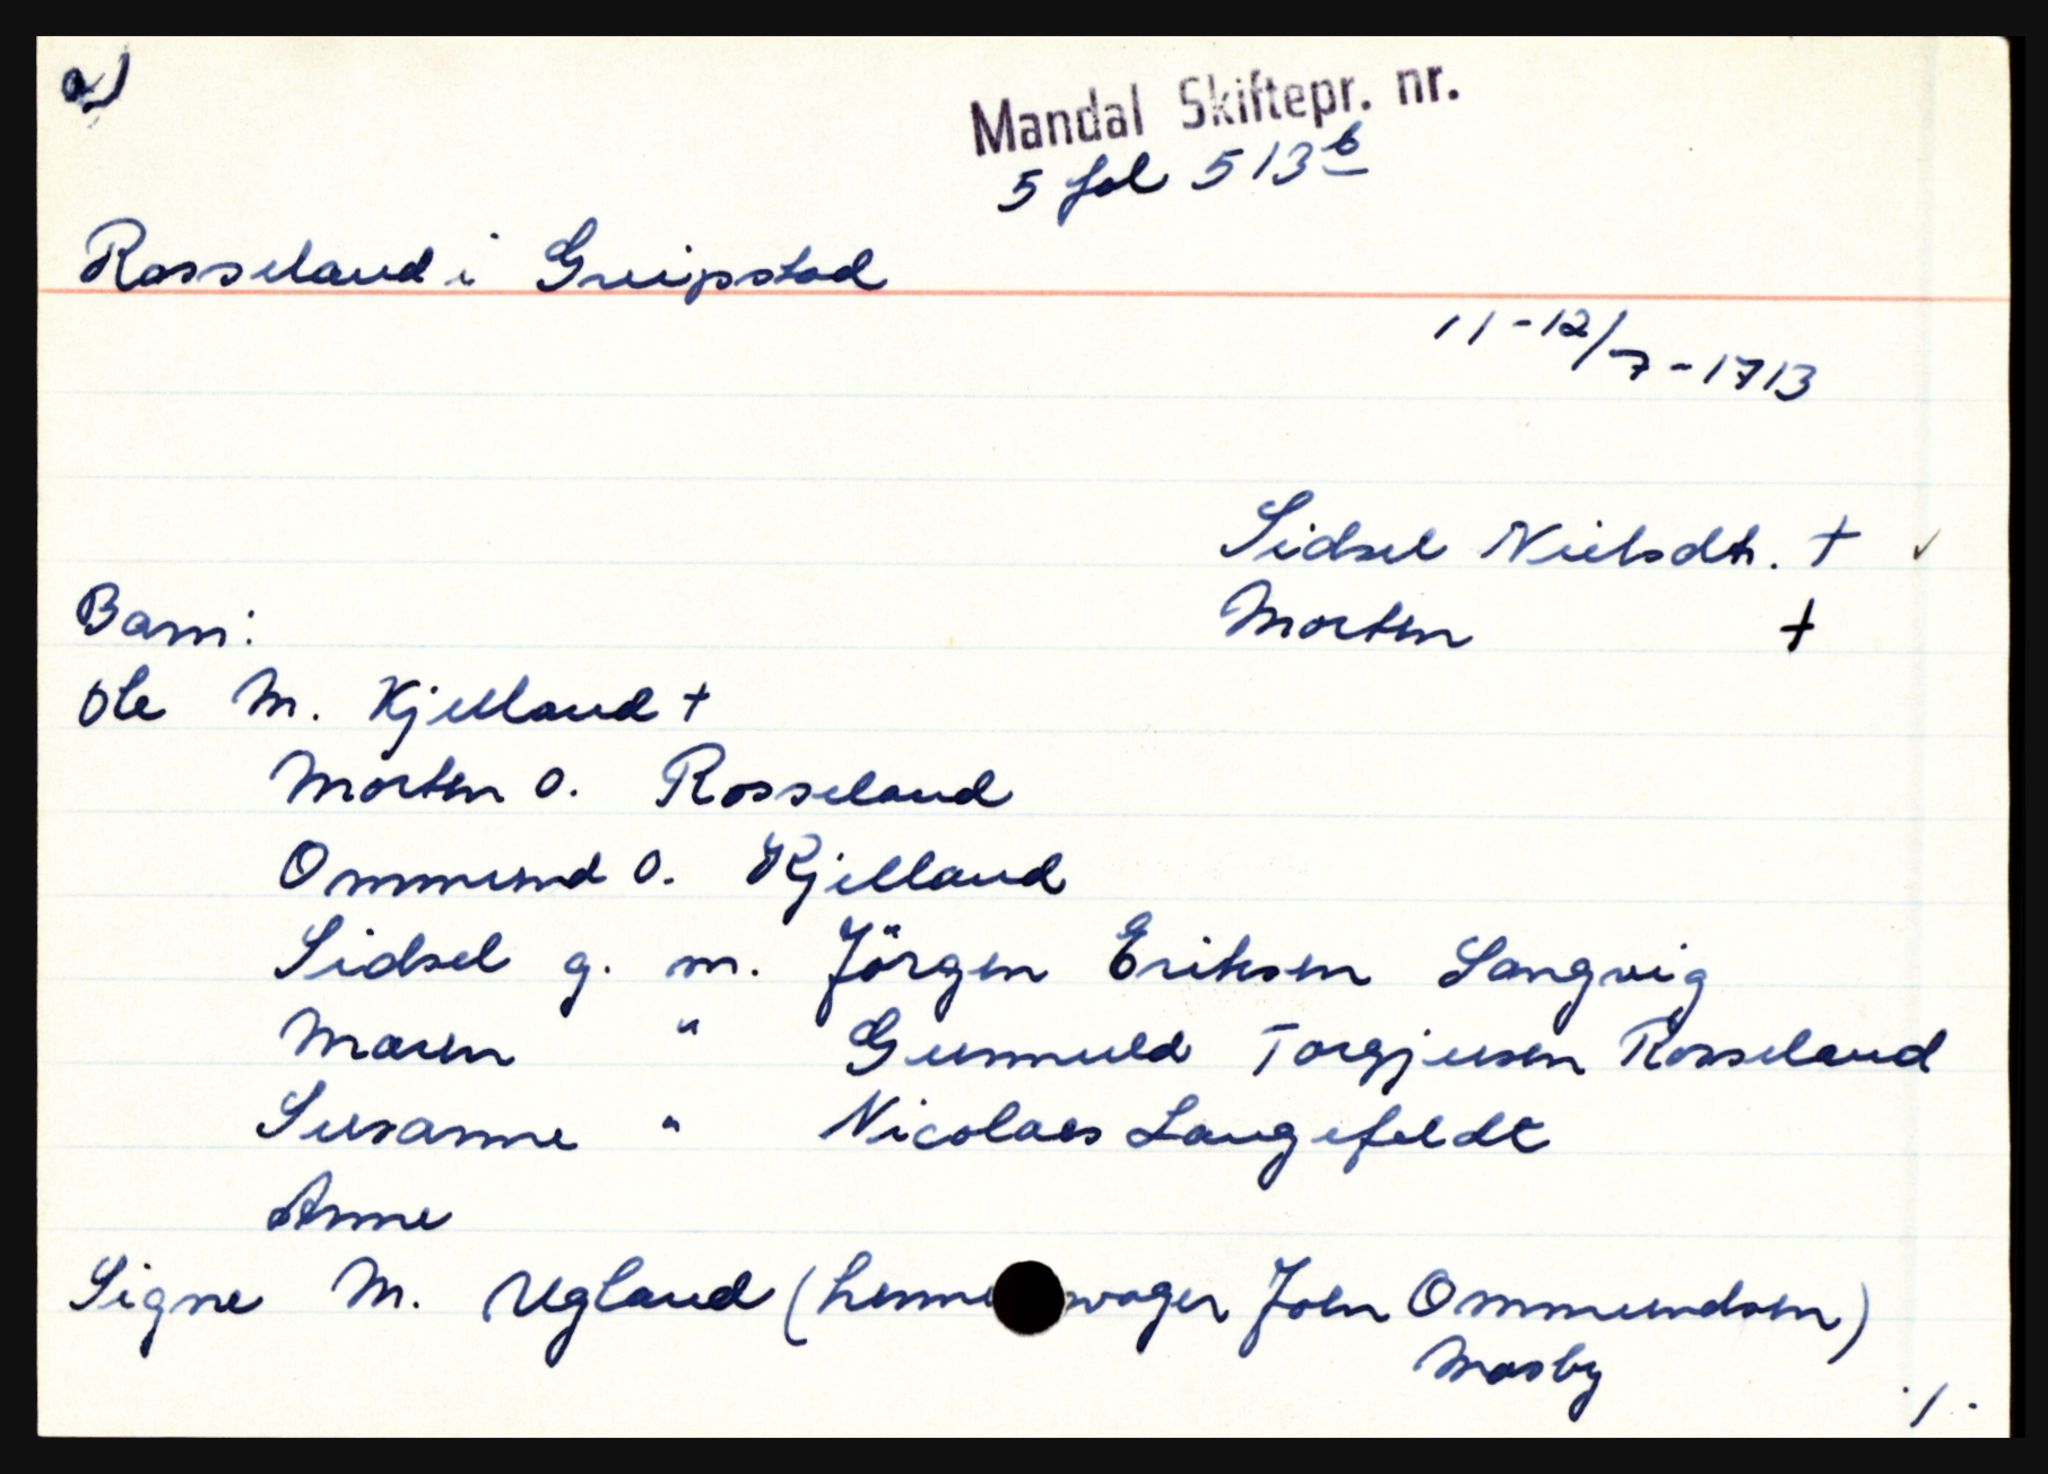 a)
Mandal Skiftepr. nr.
5 fol 513b
Rosseland i Greipstad
11-12/7-1713
Sidsel Nielsdtr. +
Morten +
Barn:
Ole M. Kjelland +
Morten O. Rosseland
Ommund O. Kjelland
Sidsel g. m. Jörgen Eriksen Langvig
Maren " Gunnuld Torgjusen Rosseland
Susanne " Nicolaes Langefeldt
Anne
Signe M. Ugland ( Joen Ommundsen)
Mosby
./.